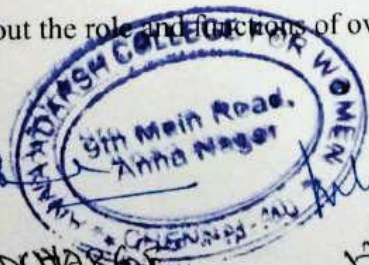 out the role and functions of ov
ANNA ADARSH COLLEGE FOR WOMEN
9th Main Road.
Anna Nagar
CHENNAI